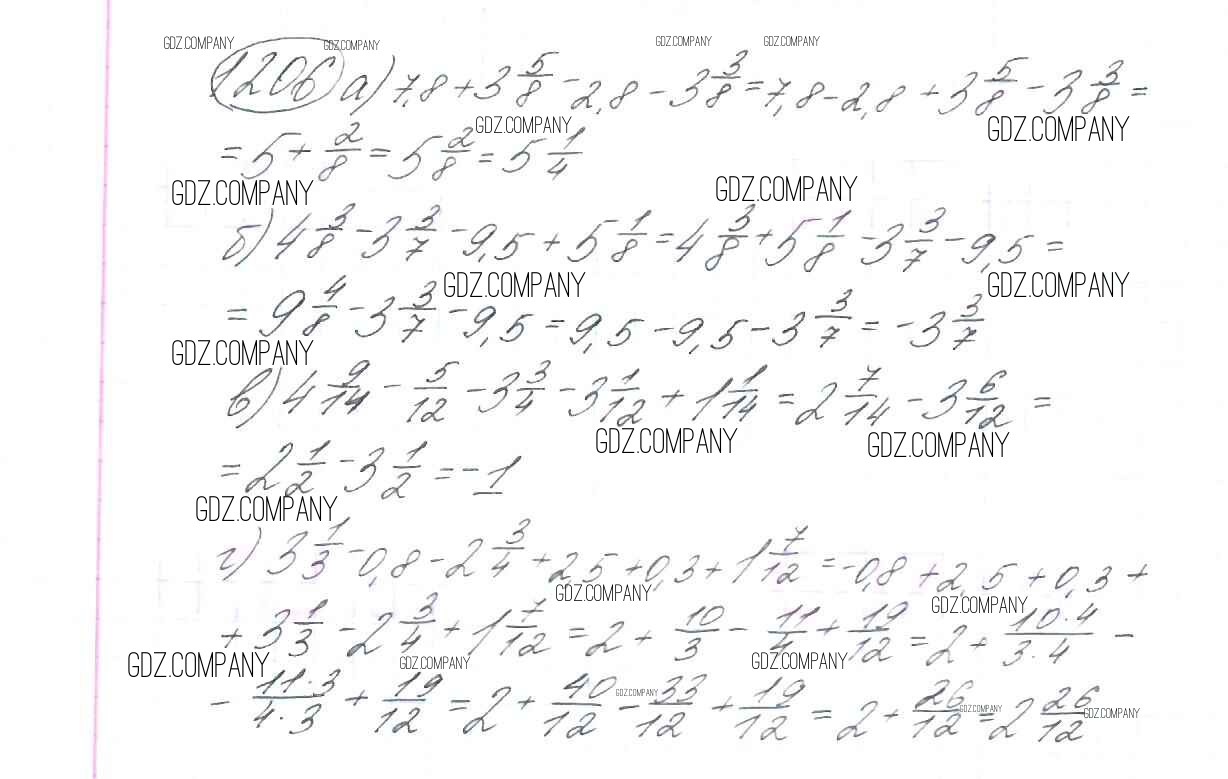 GDZ.COMPANY GDZ.COMPANY GDZ.COMPANY GDZ.COMPANY
1206 а) 7,8 + 3 5/8 - 2,8 - 3 3/8 = 7,8 - 2,8 + 3 5/8 - 3 3/8 =
GDZ.COMPANY GDZ.COMPANY
= 5 + 2/8 = 5 2/8 = 5 1/4
GDZ.COMPANY GDZ.COMPANY
б) 4 3/8 - 3 3/7 - 9,5 + 5 1/8 = 4 3/8 + 5 1/8 - 3 3/7 - 9,5 =
GDZ.COMPANY GDZ.COMPANY
= 9 4/8 - 3 3/7 - 9,5 = 9,5 - 9,5 - 3 3/7 = - 3 3/7
GDZ.COMPANY
в) 4 9/14 - 5/12 - 3 3/4 - 3 1/12 + 1 1/14 = 2 7/14 - 3 6/12 =
GDZ.COMPANY GDZ.COMPANY
= 2 1/2 - 3 1/2 = - 1
GDZ.COMPANY
г) 3 1/3 - 0,8 - 2 3/4 + 2,5 + 0,3 + 1 7/12 = -0,8 + 2,5 + 0,3 +
GDZ.COMPANY GDZ.COMPANY
+ 3 1/3 - 2 3/4 + 1 7/12 = 2 + 10/3 - 11/4 + 19/12 = 2 + 10·4/3·4 -
GDZ.COMPANY GDZ.COMPANY GDZ.COMPANY
- 11·3/4·3 + 19/12 = 2 + 40/12 - 33/12 + 19/12 = 2 + 26/12 = 2 26/12
GDZ.COMPANY GDZ.COMPANY GDZ.COMPANY